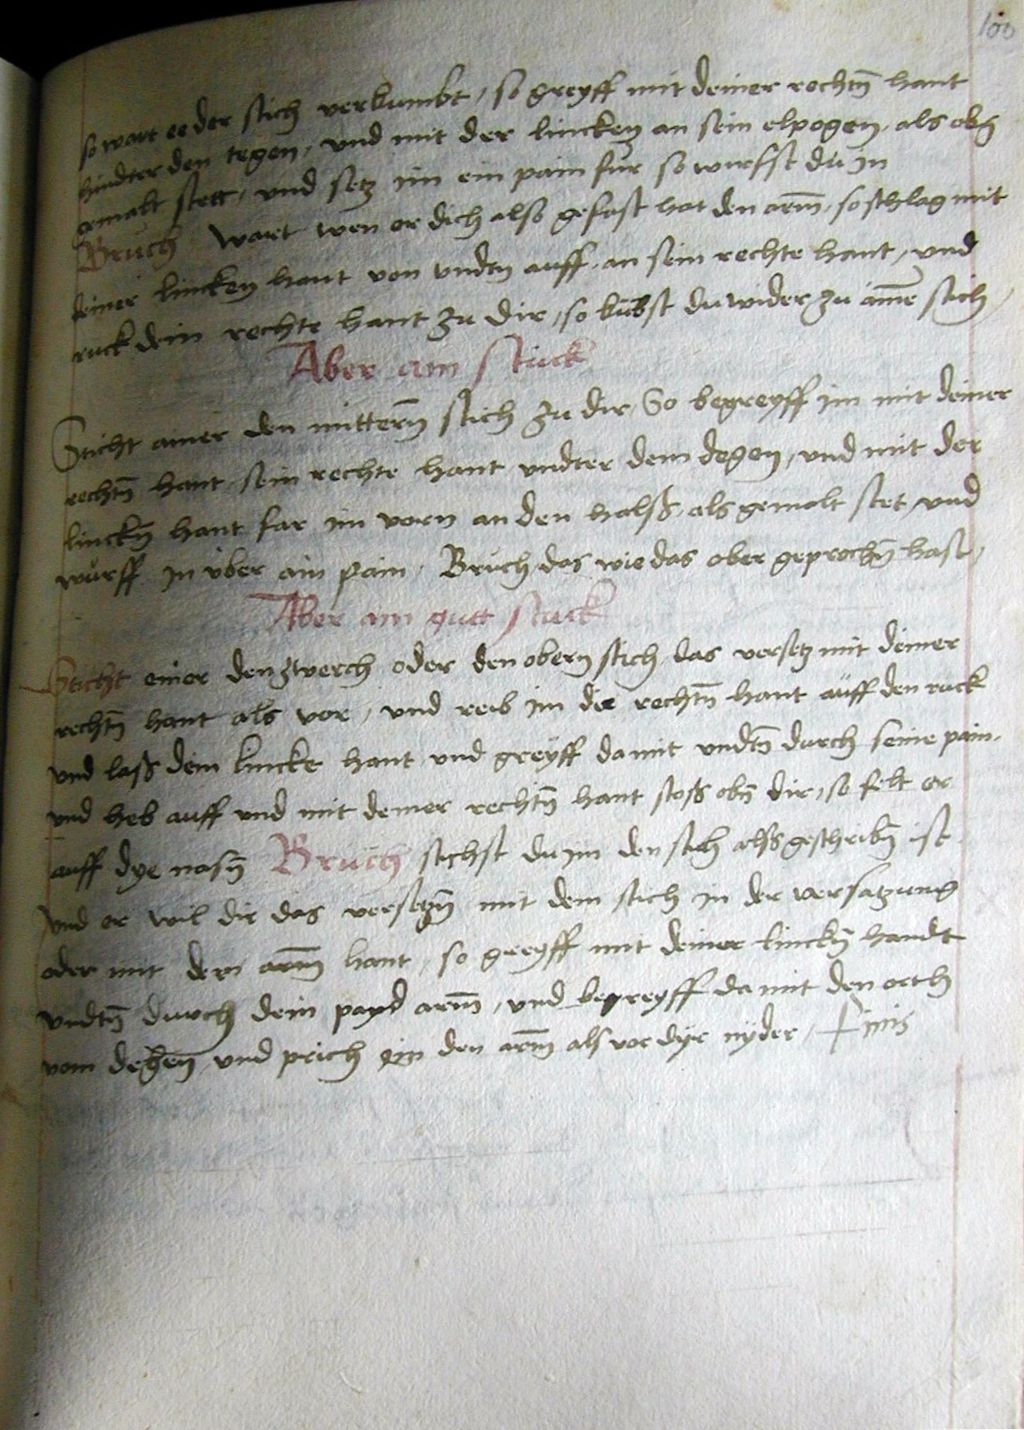 100
so wart ee der stich verkumbt / so greyff mit deiner rechtn̄ hant
hindter den tegen / und mit der lincken an sein elpogen / als obn̄
gemalt stett / und setz im ein pain für so wirfst du in
Bruch Wart wen er dich also gefast hat den arm̄ / so schlag mit
deiner lincken hant von undtn̄ auff / an sein rechte hant / und
ruck dein rechte hant zu dir / so kūbst du wider zu aīme stich /
Aber ain stuck
Sticht ainer den mittern̄ stich zu dir / So begreyff im mit deiner
rechtn̄ hant sein rechte hant undter dem degen / und mit der
linckn̄ hant far im vorn an den halß / als gemolt stet / und
würff in über ain pain / Bruch das wie das ober geprochn̄ hast /
Aber ain gutt stuck
Sticht einer den zwerch oder den obern stich / das versetz mit deiner
rechtn̄ hant als vor / und reib im die rechtn̄ hant auff den ruck
und laß dein lincke hant und greyff da mit undtn̄ durch seine pain /
und heb auff und mit deiner rechtn̄ hant stoß obn̄ dir / so felt er
auff dye nasn̄ Bruch stichst du im den stich alß geschribn̄ ist
und er wil dir das versetzn̄ mit dem stich in der versatzung
oder mit dem arm̄ hant / so greyff mit deiner linckn̄ handt
undtn̄ durch dein payd arm̄ / und begreyff da mit den orth
vom degen̄ und prich im den arm̄ als vor dyr nyder / Finis